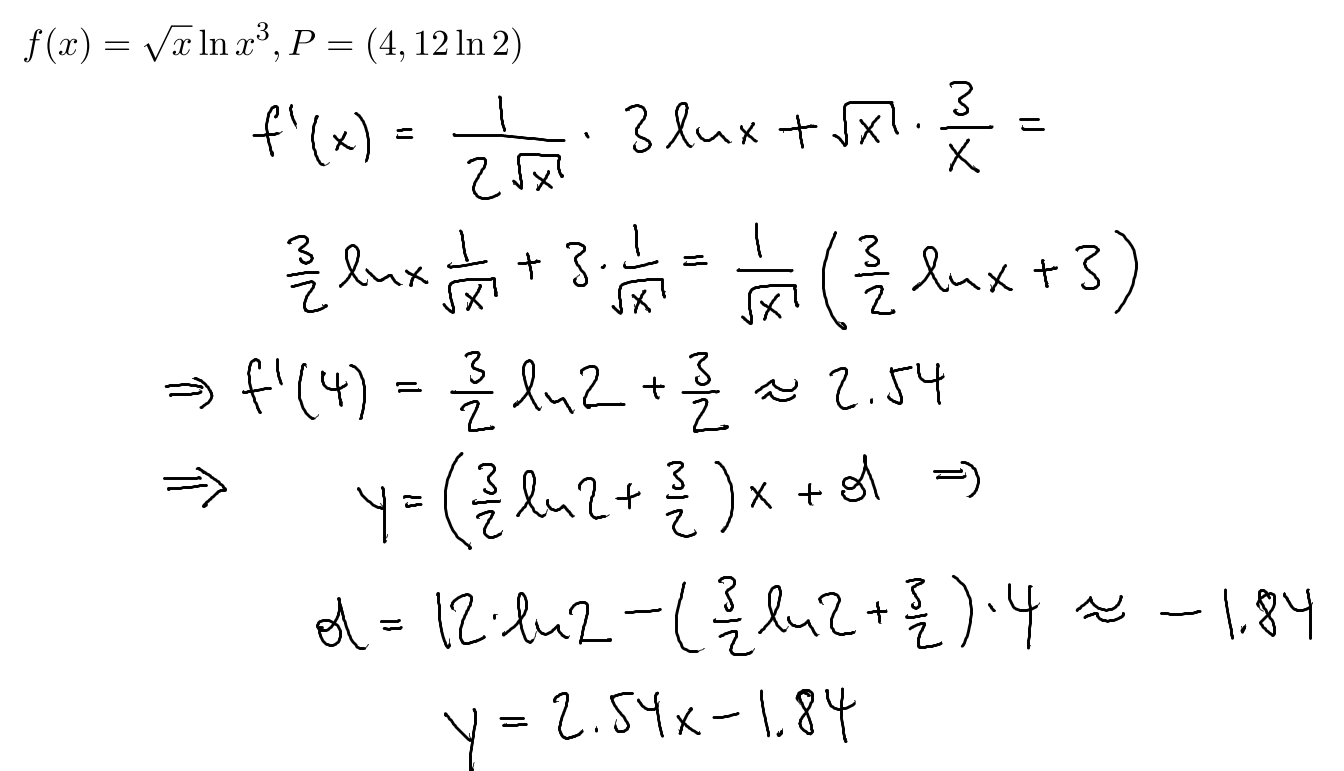 f(x) = √x ln x³, P = (4, 12 ln 2)
f'(x) = 1/(2√x) · 3 ln x + √x · 3/x =
3/2 ln x 1/√x + 3 · 1/√x = 1/√x (3/2 ln x + 3)
⇒ f'(4) = 3/2 ln 2 + 3/2 ≈ 2.54
⇒ y = (3/2 ln 2 + 3/2) x + d ⇒
d = 12 · ln 2 − (3/2 ln 2 + 3/2) · 4 ≈ − 1.84
y = 2.54x − 1.84